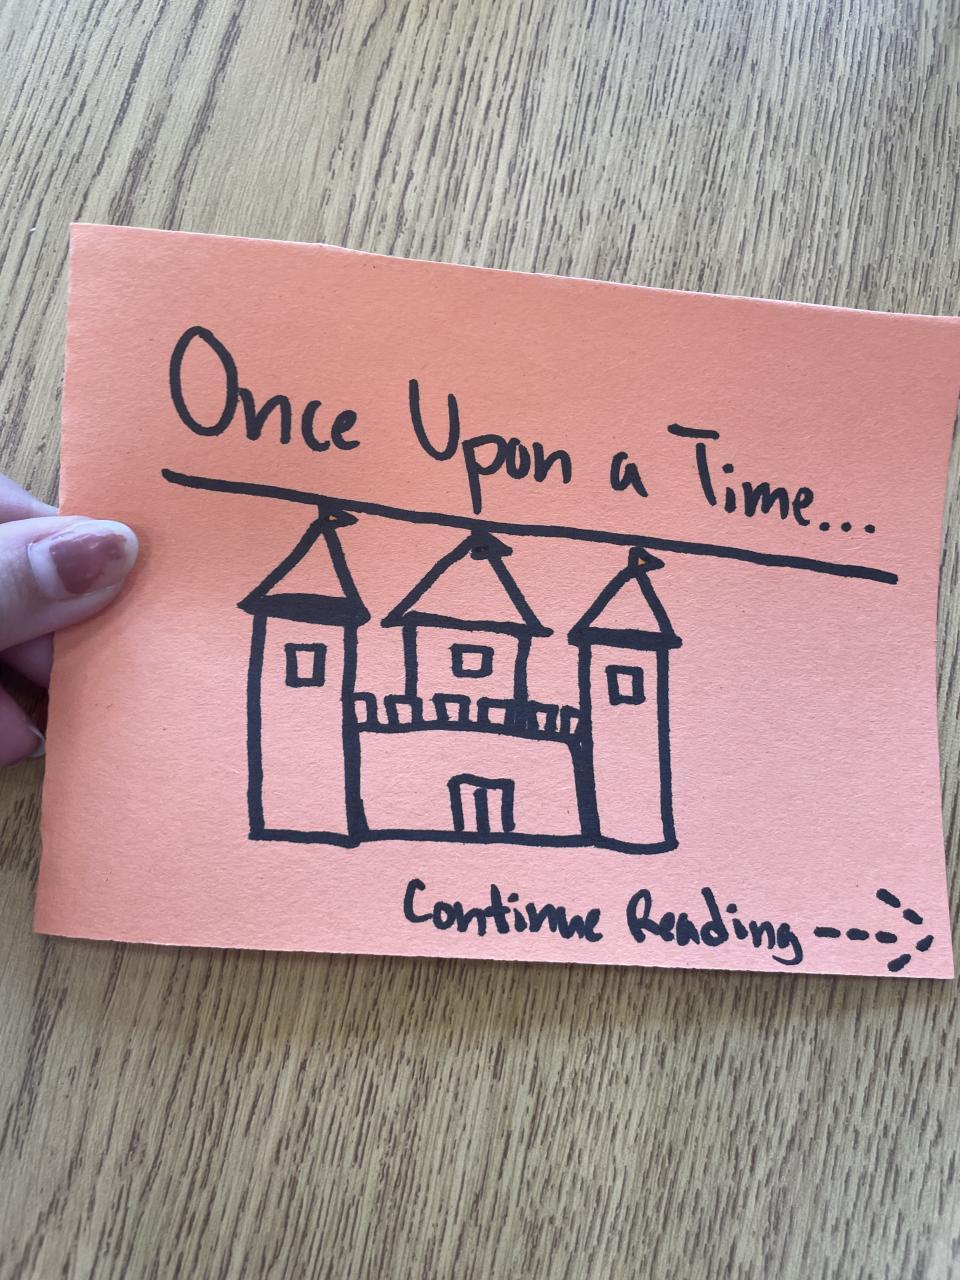 Once Upon a Time...
Continue Reading